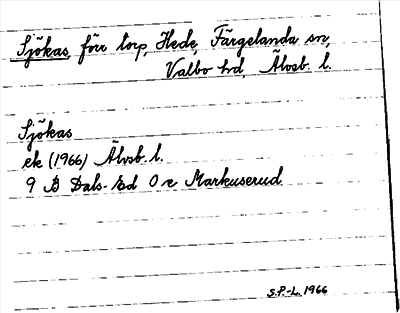 Sjökas, förr torp, Hede, Färgelanda sn,
Valbo hd, Älvsb. l.
Sjökas
ek (1966) Älvsb. l.
9 B Dals-Ed O c Markuserud
S.P.-L. 1966